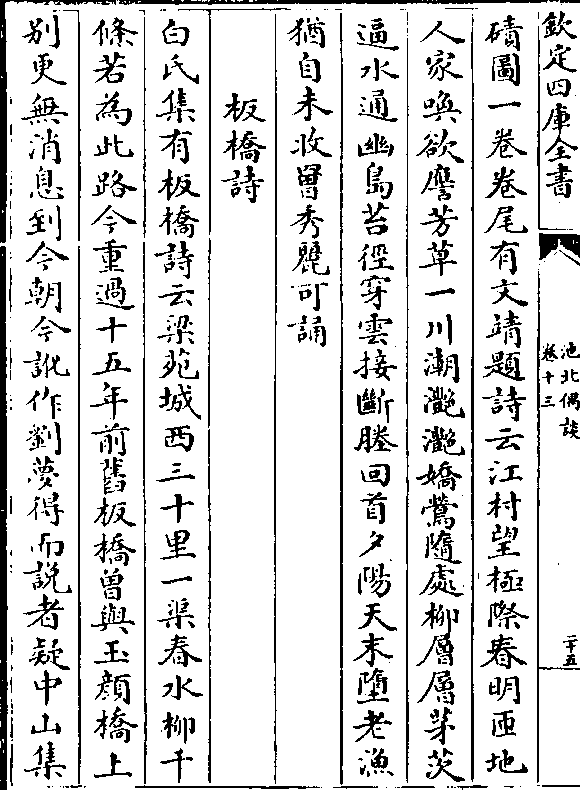 欽定四庫全書
池北偶談
卷十三
二十五
磧圖一卷卷尾有文靖題詩云江村望極際春明匝地
人家喚欲譍芳草一川潮灧灧嬌鶯隨處柳層層茅茨
逼水通幽島苔徑穿雲接斷塍回首夕陽天末墮老漁
猶自未收罾秀麗可誦
板橋詩
白氏集有板橋詩云梁苑城西三十里一渠春水柳千
條若為此路今重過十五年前舊板橋曾與玉顔橋上
别更無消息到今朝今訛作劉夢得而說者疑中山集